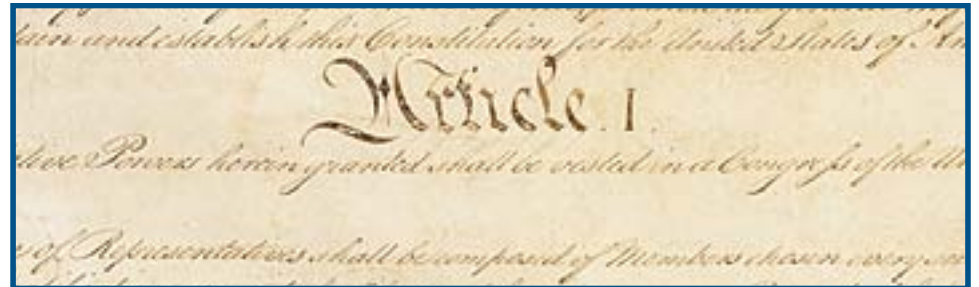 tain and establish this Constitution for the United States of Am
Article. I.
ative Powers herein granted shall be vested in a Congress of the Un
e of Representatives shall be composed of Members chosen every se